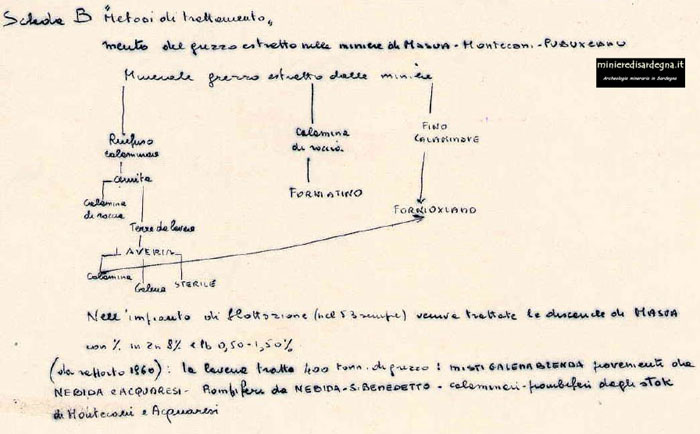 Scheda B "Metodi di trattamento"
mento del grezzo estratto nelle miniere di MASUA - Monteconi - PUBUXEDDU
minieredisardegna.it
Archeologia mineraria in Sardegna
Minerale grezzo estratto dalle miniere
Rinfuso calaminare
Calamina di roccia
FINO CALAMINARE
cernita
FORNI ATINO
Calamina di roccia
FORNI OXLAND
Terre da laveria
LAVERIA
Calamina
Galena
STERILE
Nell'impianto di flottazione (nel 53 sempre) veniva trattate le discariche di MASUA
con % in Zn 8% e Pb 0,50-1,50%
(da rapporto 1960): la laveria tratta 400 tonn. di grezzo: MISTI GALENA BLENDA provenienti da
NEBIDA e ACQUARESI - Piombiferi da NEBIDA-S.BENEDETTO - calaminari-piombiferi dagli stok
di Montecani e Acquaresi